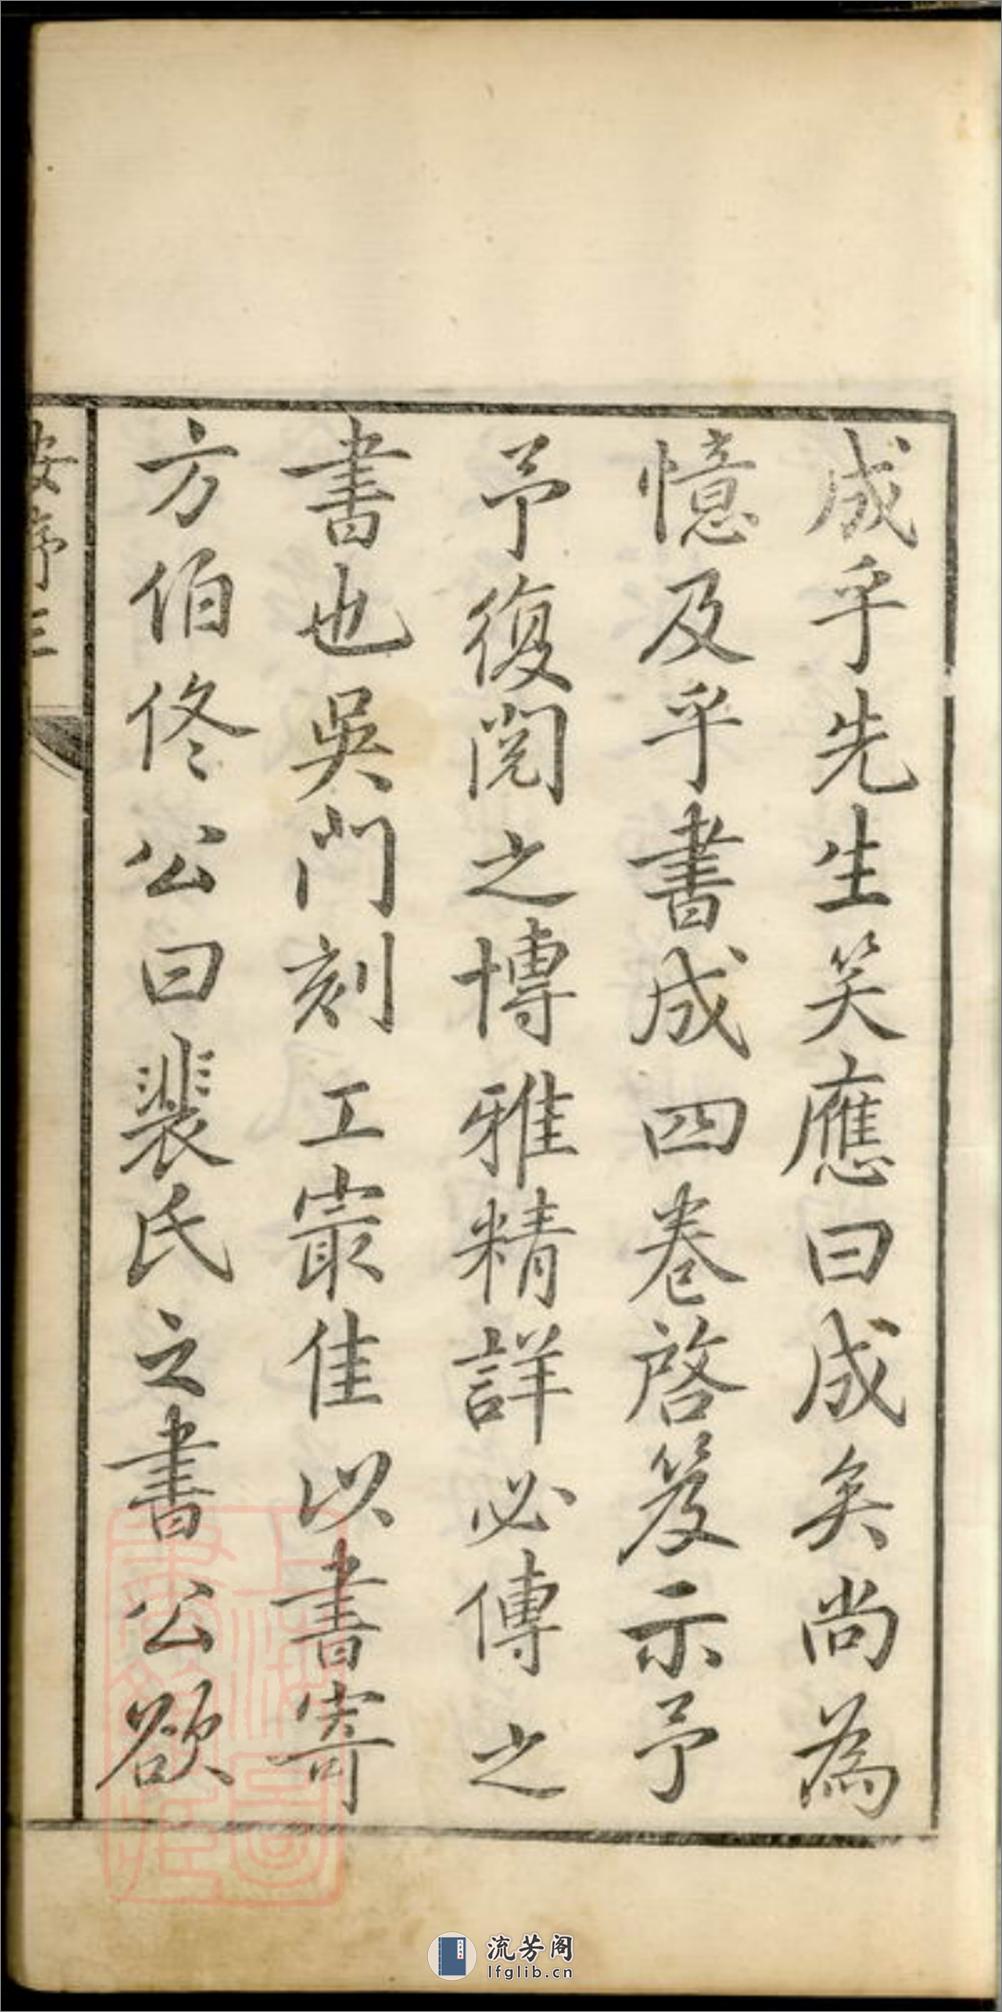 成乎先生笑應曰成矣尚為
憶及乎書成四卷啓笈示予
予復閱之博雅精詳必傳之
書也吳門刻工寂佳以書寄
方伯佟公曰裴氏之書公欲
安序三
上海圖書館藏
流芳阁
lfglib.cn